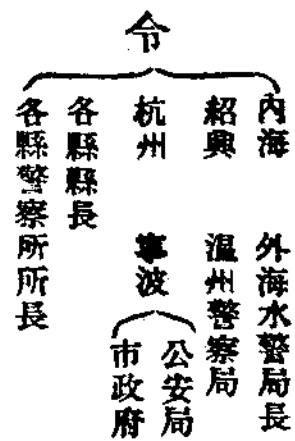 令
內海　外海水警局長
紹興　溫州警察局
杭州　寧波
公安局
市政府
各縣縣長
各縣警察所所長